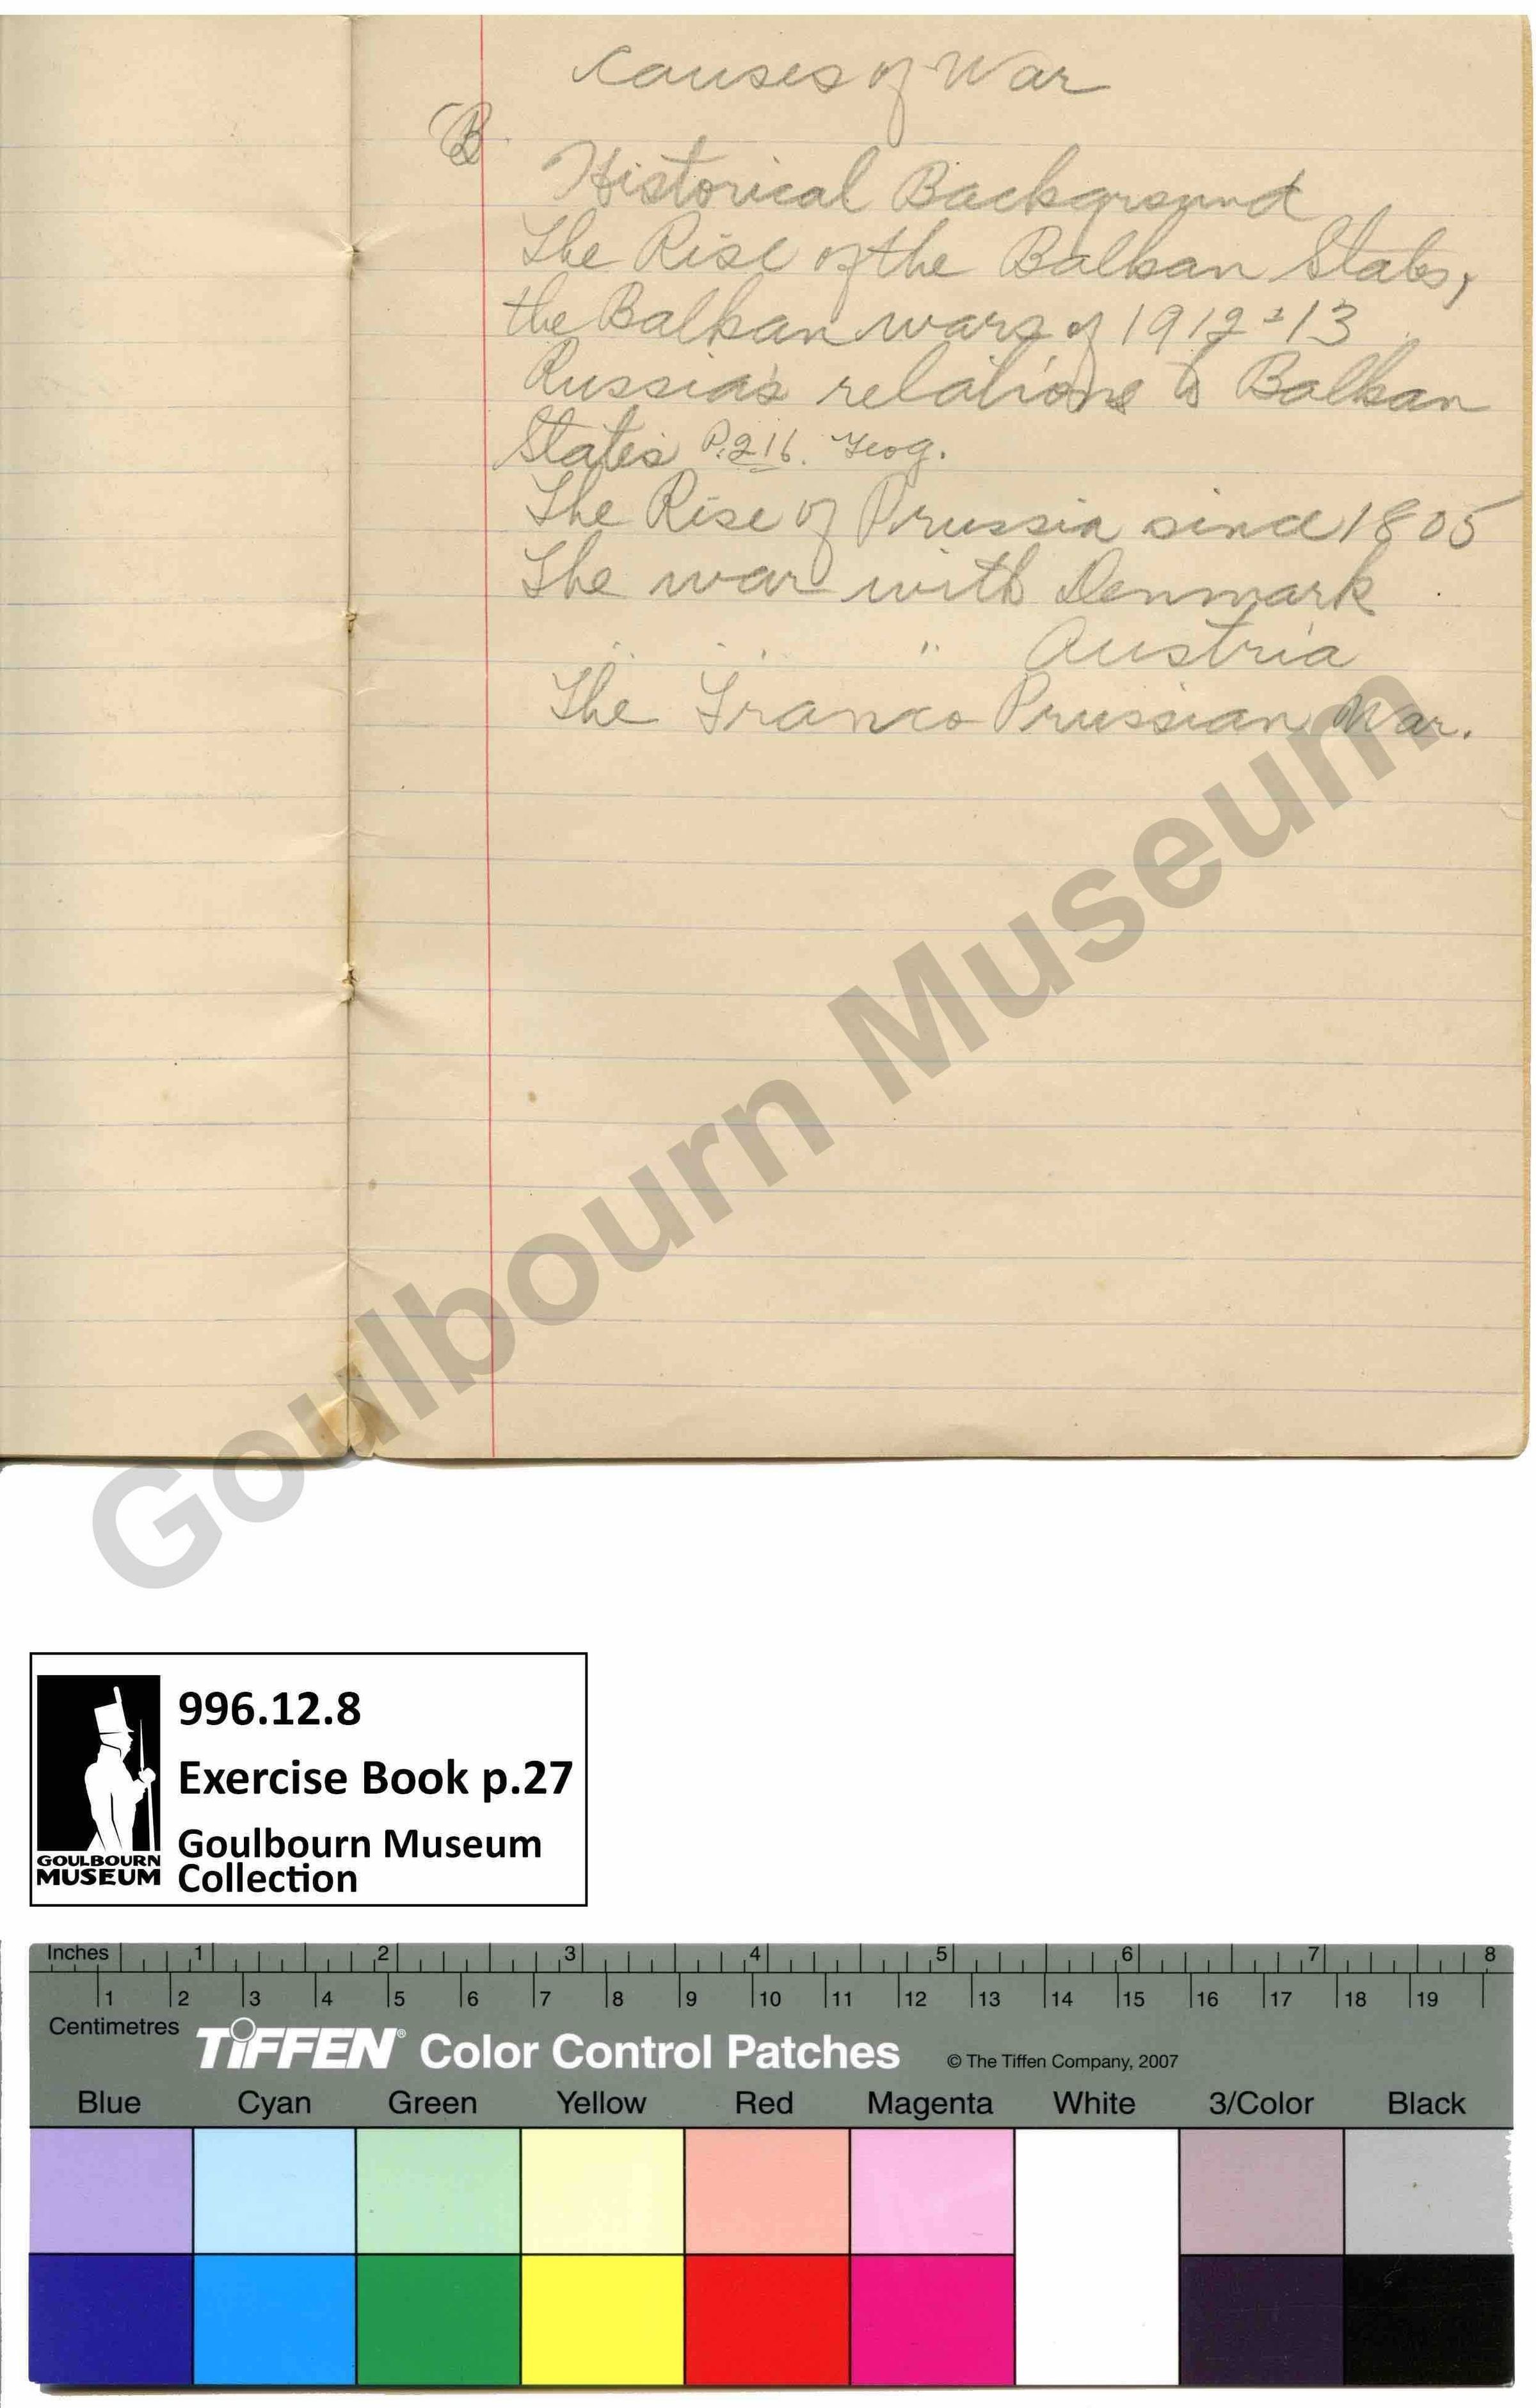 Causes of War
B
Historical Background
The Rise of the Balkan States,
the Balkan wars of 1912-13
Russia's relations to Balkan
States P.216. Geog.
The Rise of Prussia since 1805
The war with Denmark
" " " Austria
The Franco Prussian War.
Goulbourn Museum
996.12.8
Exercise Book p.27
Goulbourn Museum
Collection
GOULBOURN
MUSEUM
Inches 1 2 3 4 5 6 7 8
1 2 3 4 5 6 7 8 9 10 11 12 13 14 15 16 17 18 19
Centimetres
TIFFEN® Color Control Patches © The Tiffen Company, 2007
Blue Cyan Green Yellow Red Magenta White 3/Color Black